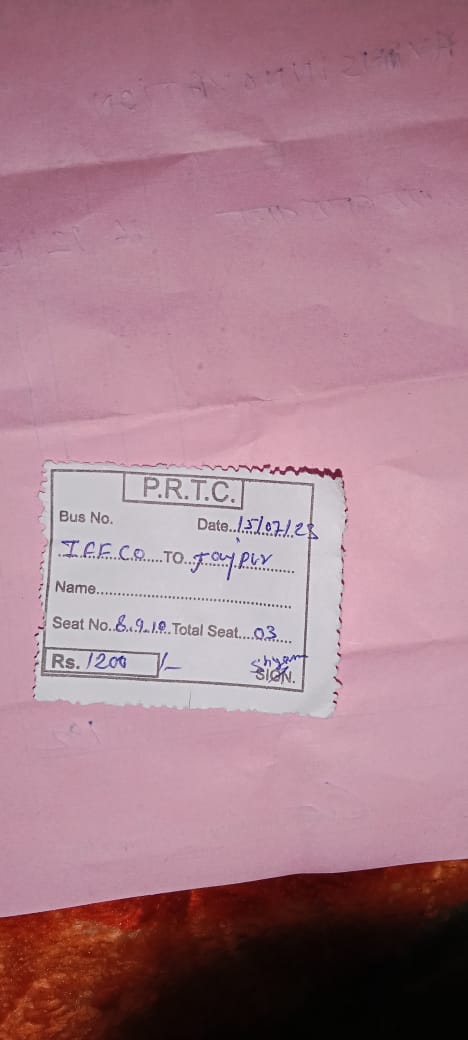 P.R.T.C.
Bus No. Date..15/07/23
.IFFCO.....TO...Jaypur..........
Name.....................................................
Seat No..8.9.10.Total Seat....03......
Rs. 1200 /- Shyam
SIGN.